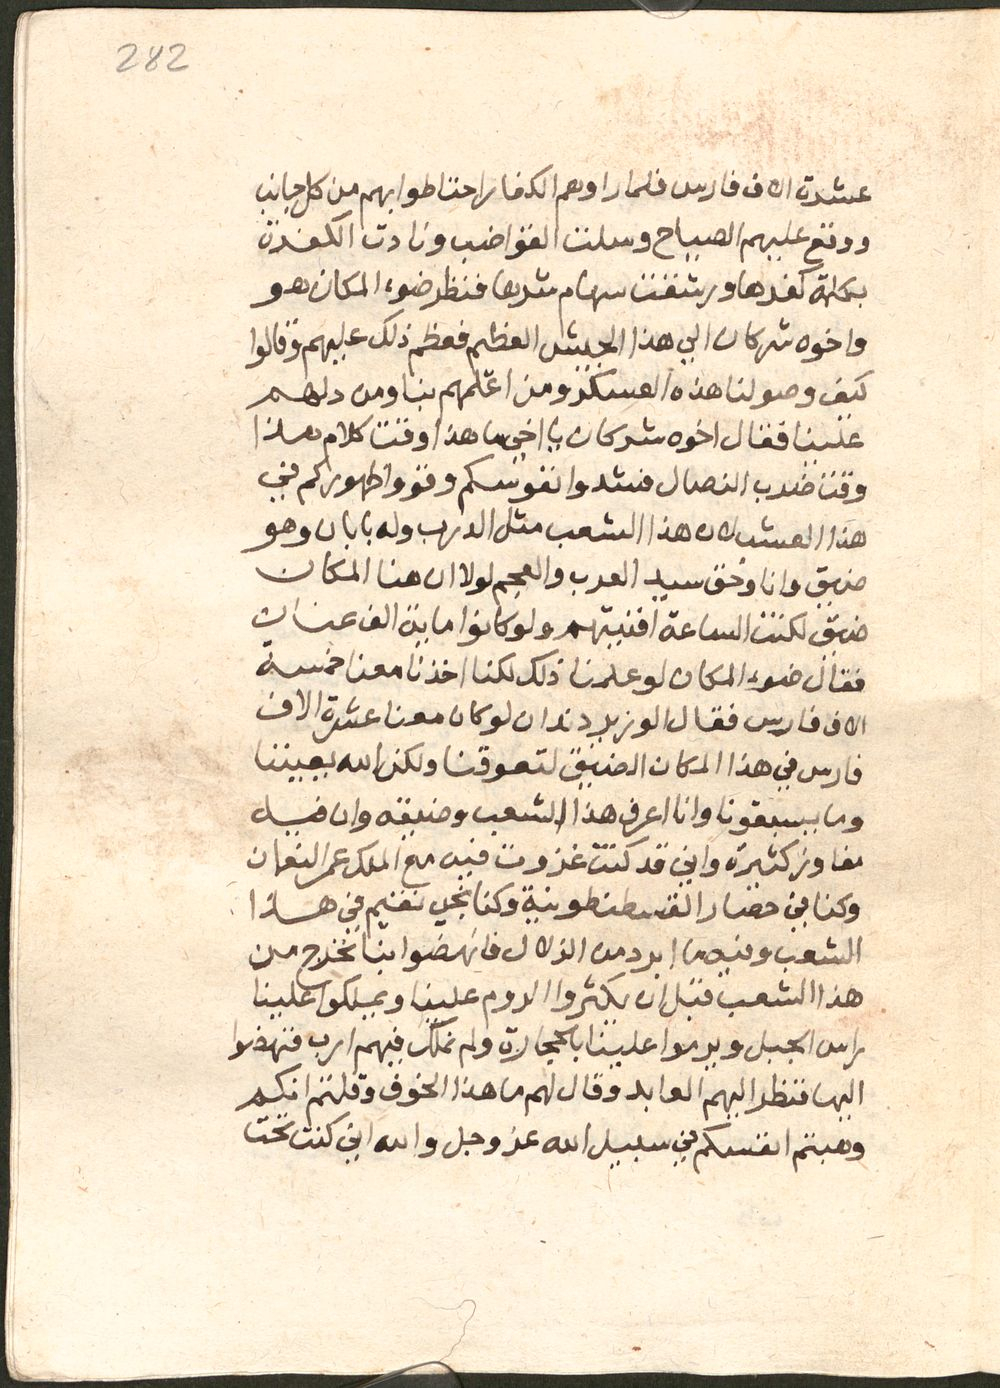 282
عشرة الاف فارس فلما راوهم الكفار احتاطوا بهم من كل جانب
ووقع عليهم الصياح وسلت القواضب ونادت الكفرة
بكلمة كفرها ورشقت سهام شرها فنظر ضوء المكان هو
واخوه شركان الي هذا الجيش العظيم فعظم ذلك عليهم وقالوا
كيف وصولنا هذه العسكر ومن اعلمهم بنا ومن دلهم
علينا فقال اخوه شركان يا اخي ما هذا وقت كلام هذا
وقت ضرب النصال فشدوا نفوسكم وقووا ظهوركم في
هذا العشب لان هذا الشعب مثل الدرب وله بابان وهو
ضيق وانا وحق سيد العرب والعجم لولا ان هنا المكان
ضيق لكنت الساعة افنيتهم ولو كانوا ماية الف عنان
فقال ضوء المكان لو علمنا ذلك لكنا اخذنا معنا خمسة
الاف فارس فقال الوزير دندان لو كان معنا عشرة الاف
فارس في هذا المكان الضيق لتعوقنا ولكن الله يعيننا
وما يسبقونا وانا اعرف هذا الشعب وضيقه وان فيه
مفاوز كثيرة واني قد كنت غزوت فيه مع الملك عمر النعمان
وكنا في حصار القسطنطونية وكنا نجي نقيم في هذا
الشعب وفيه ما ابرد من الزلال فانهضوا بنا نخرج من
هذا الشعب قبل ان يكثروا الروم علينا ويملكوا علينا
راس الجبل ويرموا علينا بالحجارة ولم نملك فيهم ارب فنهضوا
اليها فنظر اليهم العابد وقال لهم ما هذا الخوف وقلتم انكم
وهبتم انفسكم في سبيل الله عز وجل والله اني كنت تحت